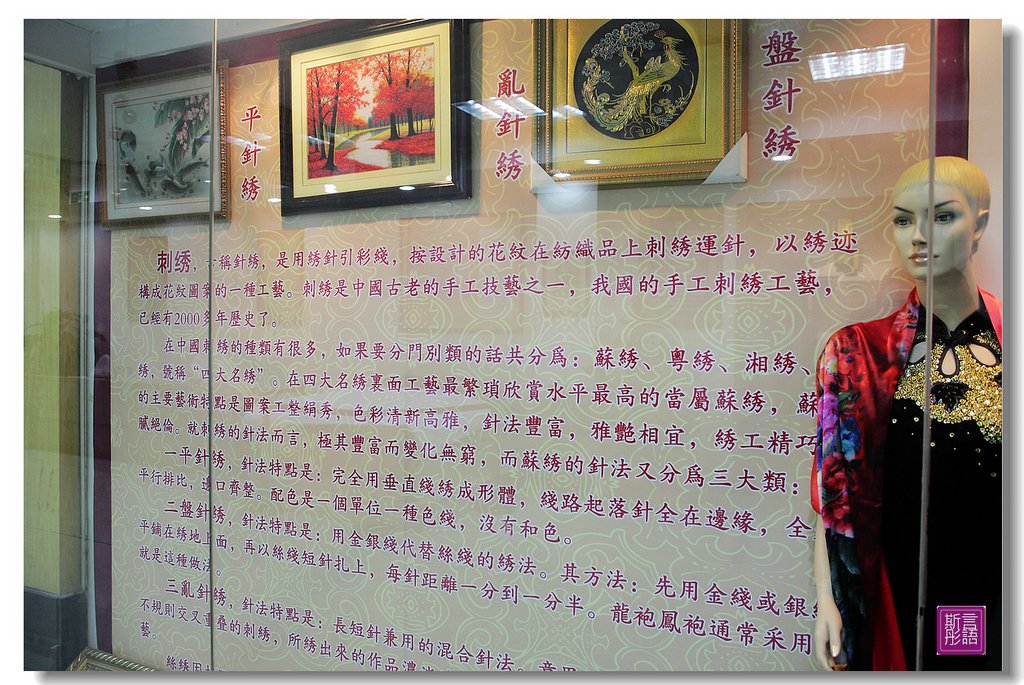 平針綉
亂針綉
盤針綉
刺绣，稱針綉，是用綉針引彩綫，按設計的花紋在紡織品上刺綉運針，以綉迹
構成花紋圖案的一種工藝。刺綉是中國古老的手工技藝之一，我國的手工刺綉工藝，
已經有2000多年歷史了。
在中國刺綉的種類有很多，如果要分門別類的話共分爲：蘇綉、粤綉、湘綉、
綉，號稱“四大名綉”。在四大名綉裏面工藝最繁瑣欣賞水平最高的當屬蘇綉，蘇
的主要藝術特點是圖案工整絹秀，色彩清新高雅，針法豐富，雅艷相宜，綉工精巧
膩絕倫。就刺綉的針法而言，極其豐富而變化無窮，而蘇綉的針法又分爲三大類：
一平針綉，針法特點是：完全用垂直綫綉成形體，綫路起落針全在邊緣，全
平行排比，邊口齊整。配色是一個單位一種色綫，沒有和色。
二盤針綉，針法特點是：用金銀綫代替絲綫的綉法。其方法：先用金綫或銀綫
平鋪在綉地上面，再以絲綫短針扎上，每針距離一分到一分半。龍袍鳳袍通常采用
就是這種做法。
三亂針綉，針法特點是：長短針兼用的混合針法。
不規則交叉重疊的刺綉，所綉出來的作品
藝。
絲綉因
言語
斯彤